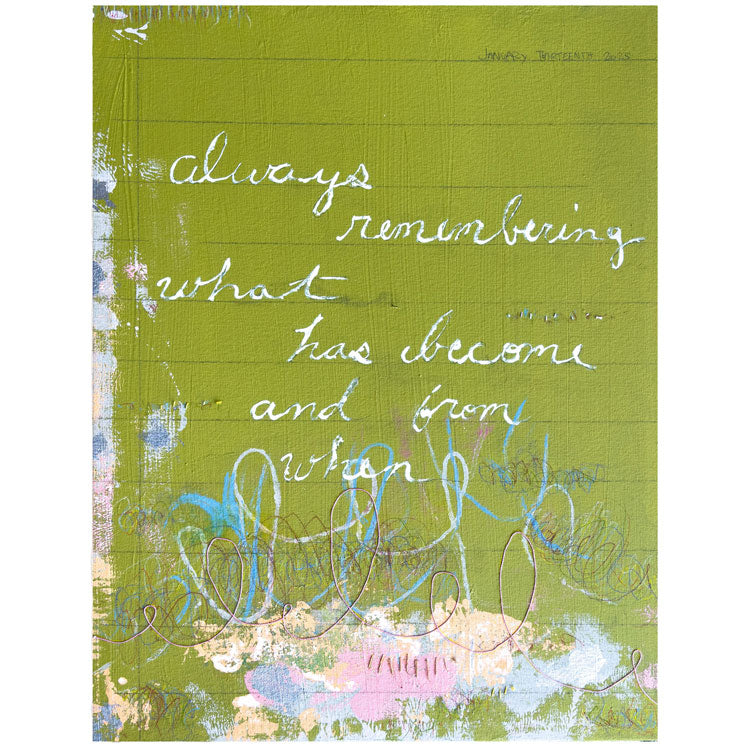 JANUARY THIRTEENTH 2025
always
remembering
what
has become
and from
when